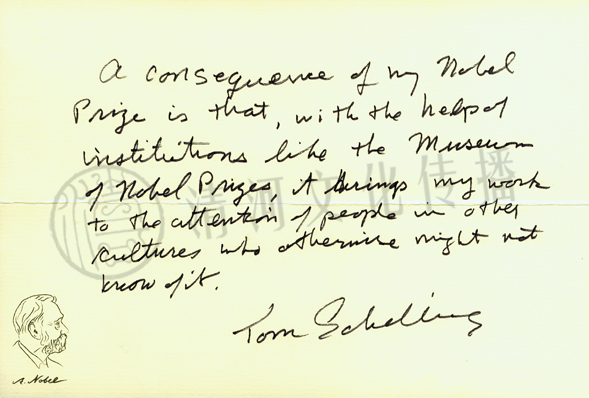 A consequence of my Nobel
Prize is that, with the help of
institutions like the Museum
of Nobel Prizes, it brings my work
to the attention of people in other
cultures who otherwise might not
know of it.
Tom Schelling
A. Nobel
清河文化传播